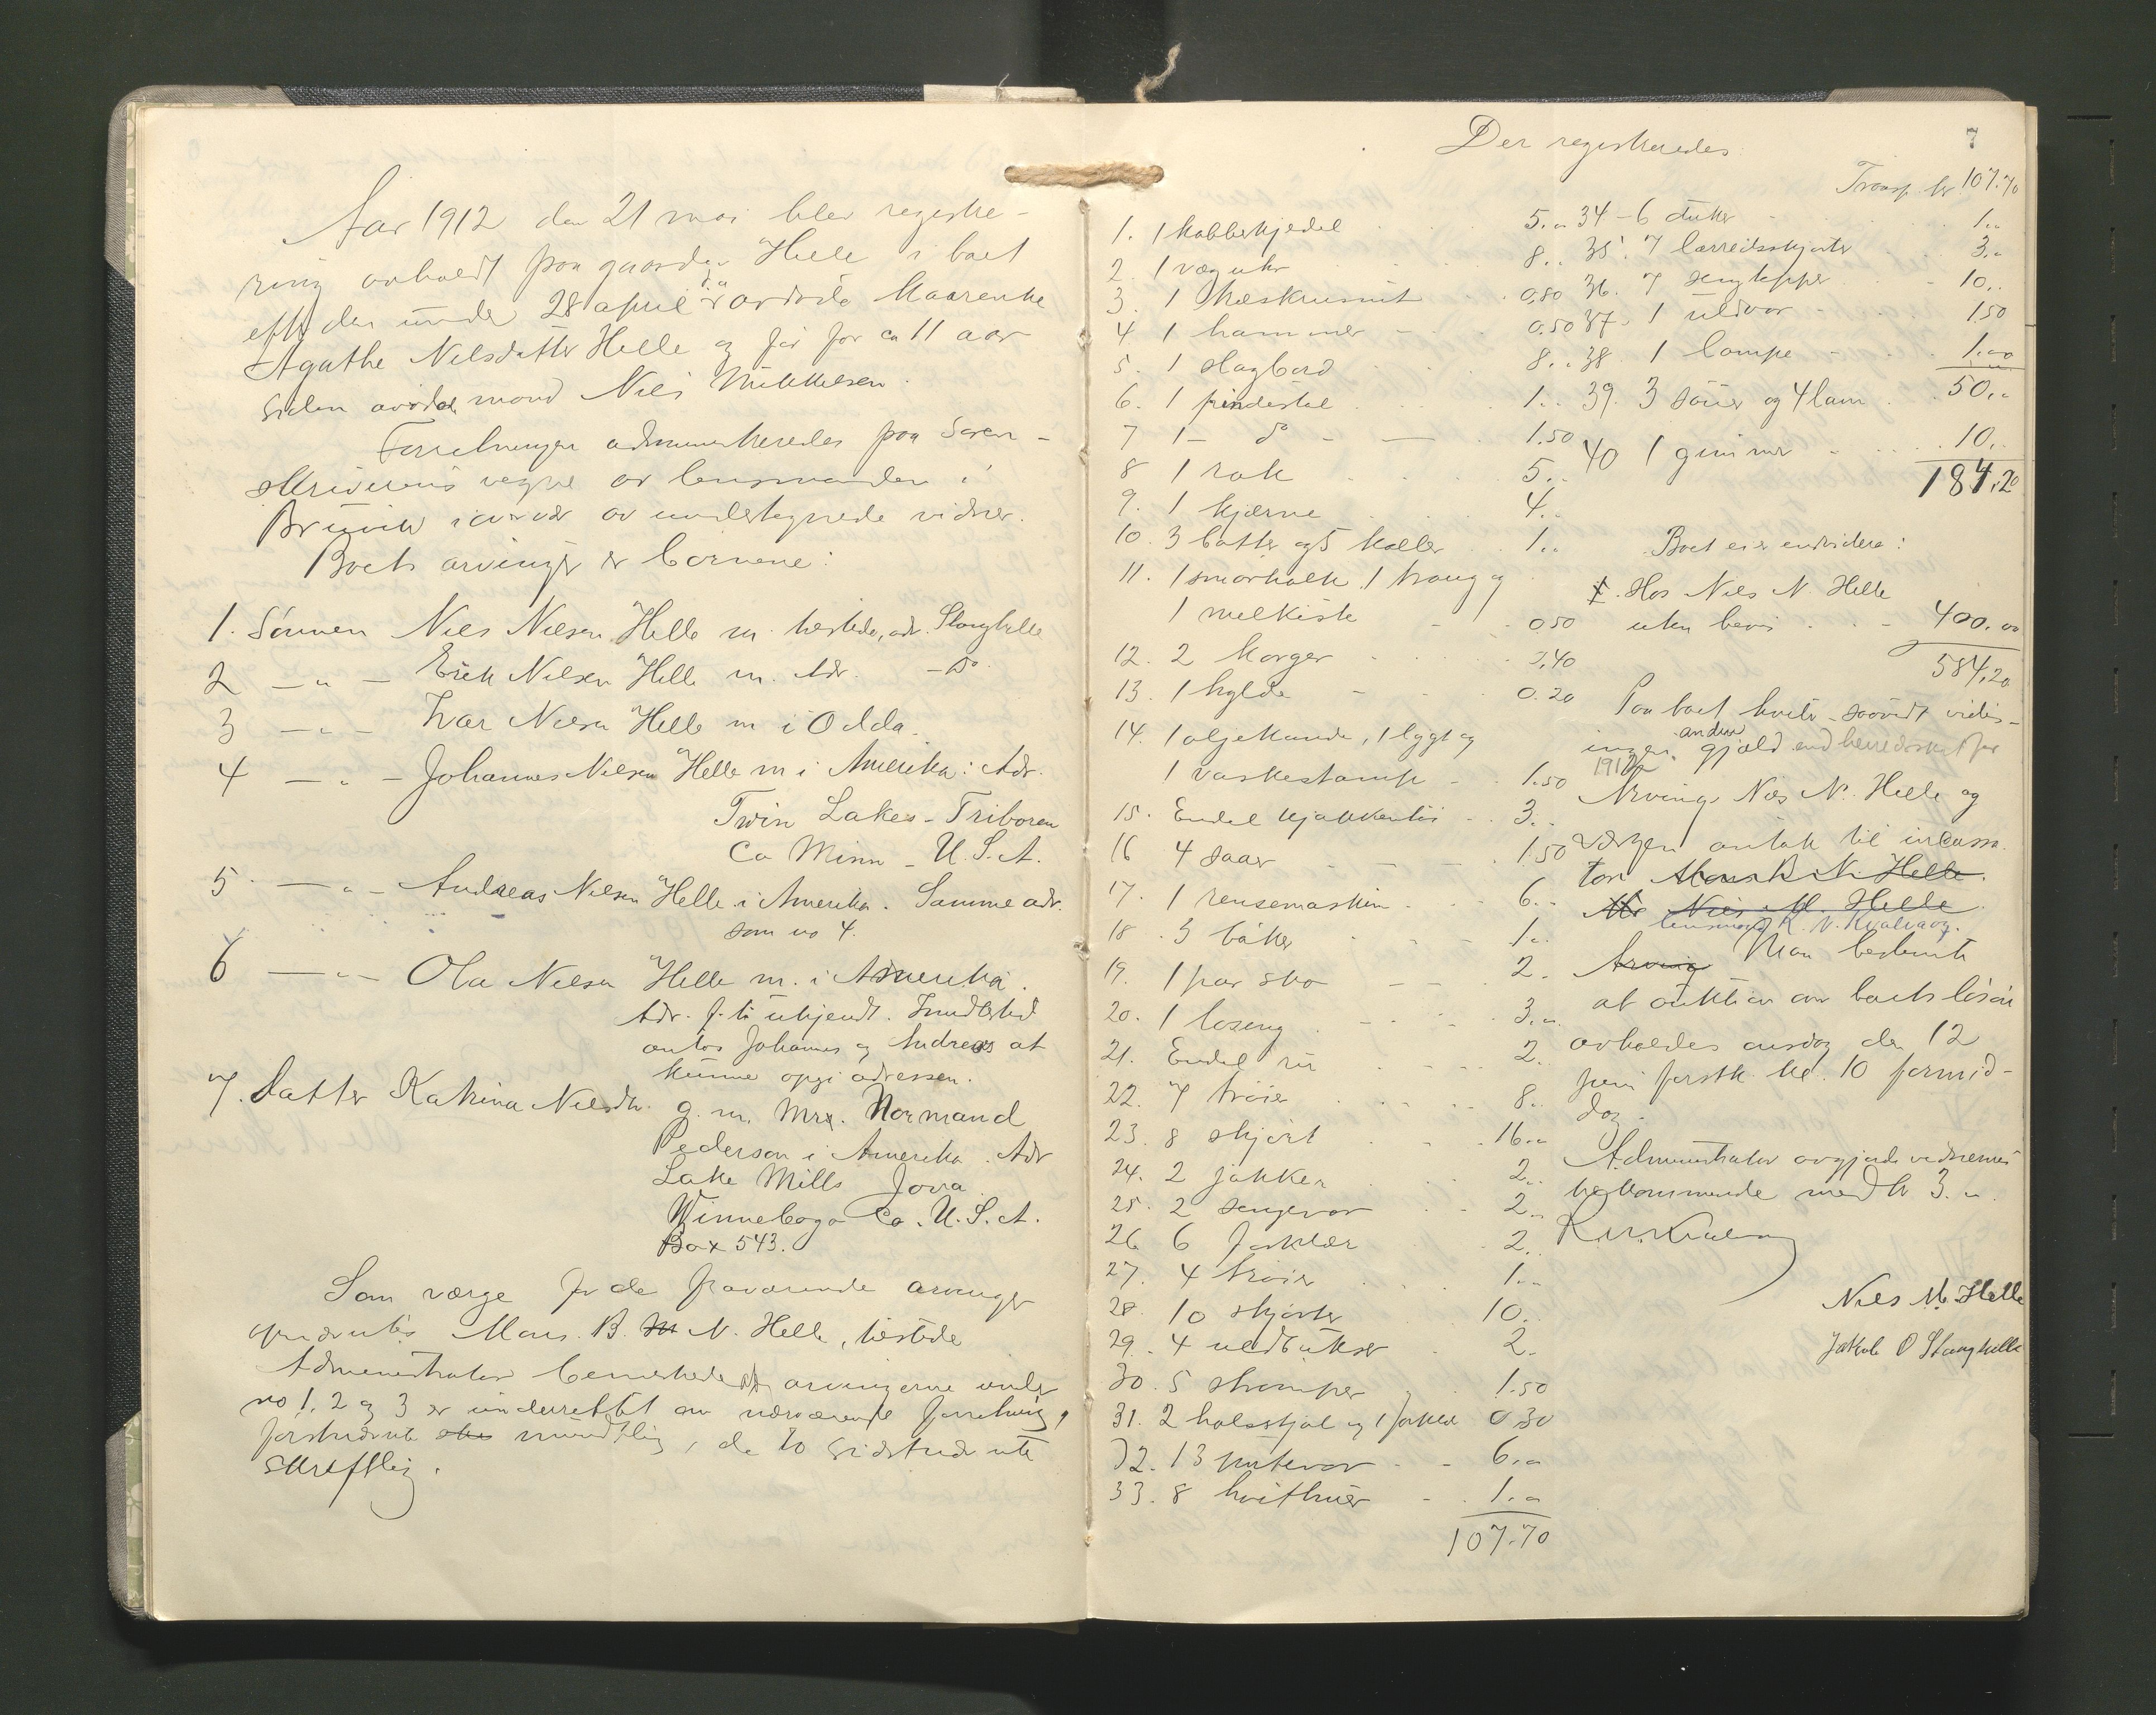 Aar 1912 den 21 mai blev registre-
ring avholdt paa gaarden Helle i boet
efter den under 28 april d.a. avdøde kaarenke
Agathe Nilsdatter Helle og før for ca 11 aar
siden avdøde mand Nils Mikkelsen.
Forretningen administreredes paa Soren-
skriverens vegne av lensmanden i
Bruvik i overvær av undertegnede vidner.
Boets arvinger er børnene:
1. Sønnen Nils Nilsen Helle m. tilstede, adr. Stanghelle
2 — " — Erik Nilsen Helle m. Adr. — Do
3 — " — Ivar Nilsen Helle m i Odda.
4 — " — Johannes Nilsen Helle m i Amerika: Adr.
Twin Lakes - Triboren
Co Minn - U.S.A.
5 — " — Andreas Nilsen Helle i Amerika. Samme adr.
som no 4.
6 — " — Ola Nilsen Helle m. i Amerika.
Adr. f. ti ukjendt. Imidlertid
antas Johannes og Andreas at
kunne opgi adressen.
7. Datter Katrina Nilsdtr. g. m. Mrs. Normand
Pederson i Amerika. Adr
Lake Mills Jova
Winnebago Co. U.S.A.
Box 543.
Som værge for de fraværende arvinger
opnævntes Mons. B. M N. Helle, tilstede
Administrator bemerkede at arvingerne under
no 1, 2 og 3 er underrettet om nærværende forretning,
førstnævnte mundtlig, de to sidstnævnte
skriftlig.
7
Der registreredes
1. 1 kobberkjedel 5."
2. 1 væguhr 8."
3. 1 0.80
4 1 hammer 0.50
5. 1 slagbord 8."
6. 1 pindestol 1."
7 1 — do — 1.50
8 1 rok 5."
9. 1 kjærne 4."
10. 3 bøtter og 5 koller 1."
11. 1 smørkolle 1 traug og
1 melkiste 0.50
12. 2 korger 0.40
13. 1 hylde 0.20
14. 1 oljekande, 1 lygt og
1 vaskestamp 1.50
15. Endel kjøkkentøi 3."
16 4 saar 1.50
17. 1 rensemaskin 6."
18. 3 bøker 1."
19. 1 par sko 2.
20. 1 loseng 3."
21. Endel 2.
22. 7 trøier 8."
23. 8 skjørt 16."
24. 2 jakker 2."
25. 2 sengevar 2."
26 6 forklær 2."
27. 4 trøier 1."
28. 10 skjorter 10."
29. 4 uldbukser 2.
30. 5 strømper 1.50
31. 2 halsskjal og 1 forklæ 0.30
32. 13 putevar 6."
33. 8 hvithuer 1."
107.70
Transp. kr 107.70
34 - 6 duker 1."
35. 7 lærredsskjorter 3."
36. 7 sengtepper 10."
37. 1 uldvar 1.50
38. 1 lampe 1.00
39. 3 sauer og 4 lam 50."
40 1 gimmer 10."
184.20
Boet eier endvidere:
1. Hos Nils N. Helle
uten bevis 400.00
584.20
Paa boet hviler saavidt vides
ingen anden gjæld end herredsskat for
1912
Arving Nils N. Helle og
værgen antok til incassa-
tor Mons B N. Helle.
Nils M. Helle
lensmand K. N. Kvalvaag.
Arving Man bestemte
at auktion over boets løsøre
avholdes onsdag den 12
juni førstk. kl. 10 formid-
dag.
Administrator avgjorde vidnernes
tilkommende med kr 3."
K. N. Kvalvaag
Nils M. Helle
Jakob O Stanghelle